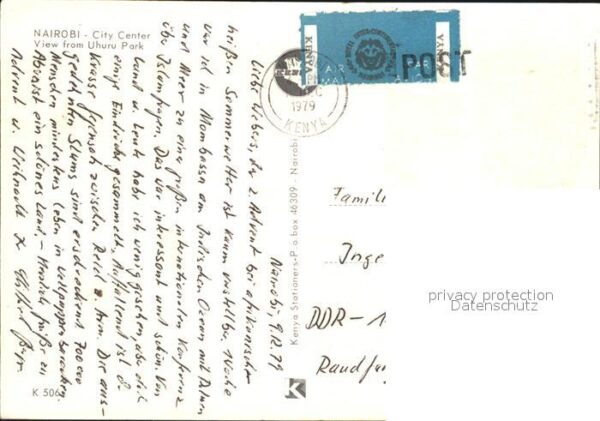 NAIROBI - City Center
View from Uhuru Park
Nairobi, 9.12.79
Liebe Webers, der 2. Advent bei afrikanischer
heißen Sommerwetter ist kaum vorstellbar. 1 Woche
war ich in Mombassa am Indischen Ozean mit Palmen
und Meer zu einer großen internationalen Konferenz
über Islamfragen. Das war interessant und schön. Von
Land u. Leute habe ich wenig gesehen, aber doch
einige Eindrücke gesammelt. Auffallend ist d.
krasse Gegensatz zwischen Reich u. Arm. Die aus-
gedehnten Slums sind erschreckend. 70000
Menschen mindestens leben in Wellpappen baracken.
Ansonst ein schönes Land. - Herzliche Grüße zu
Advent u. Weihnacht
K 506
Kenya Stationers-P.o.box 46309 - Nairobi
KENYA
KENYA
AIR
1979
KENYA
POST
Famili
Inge
DDR - 1
Raudf
privacy protection
Datenschutz
K